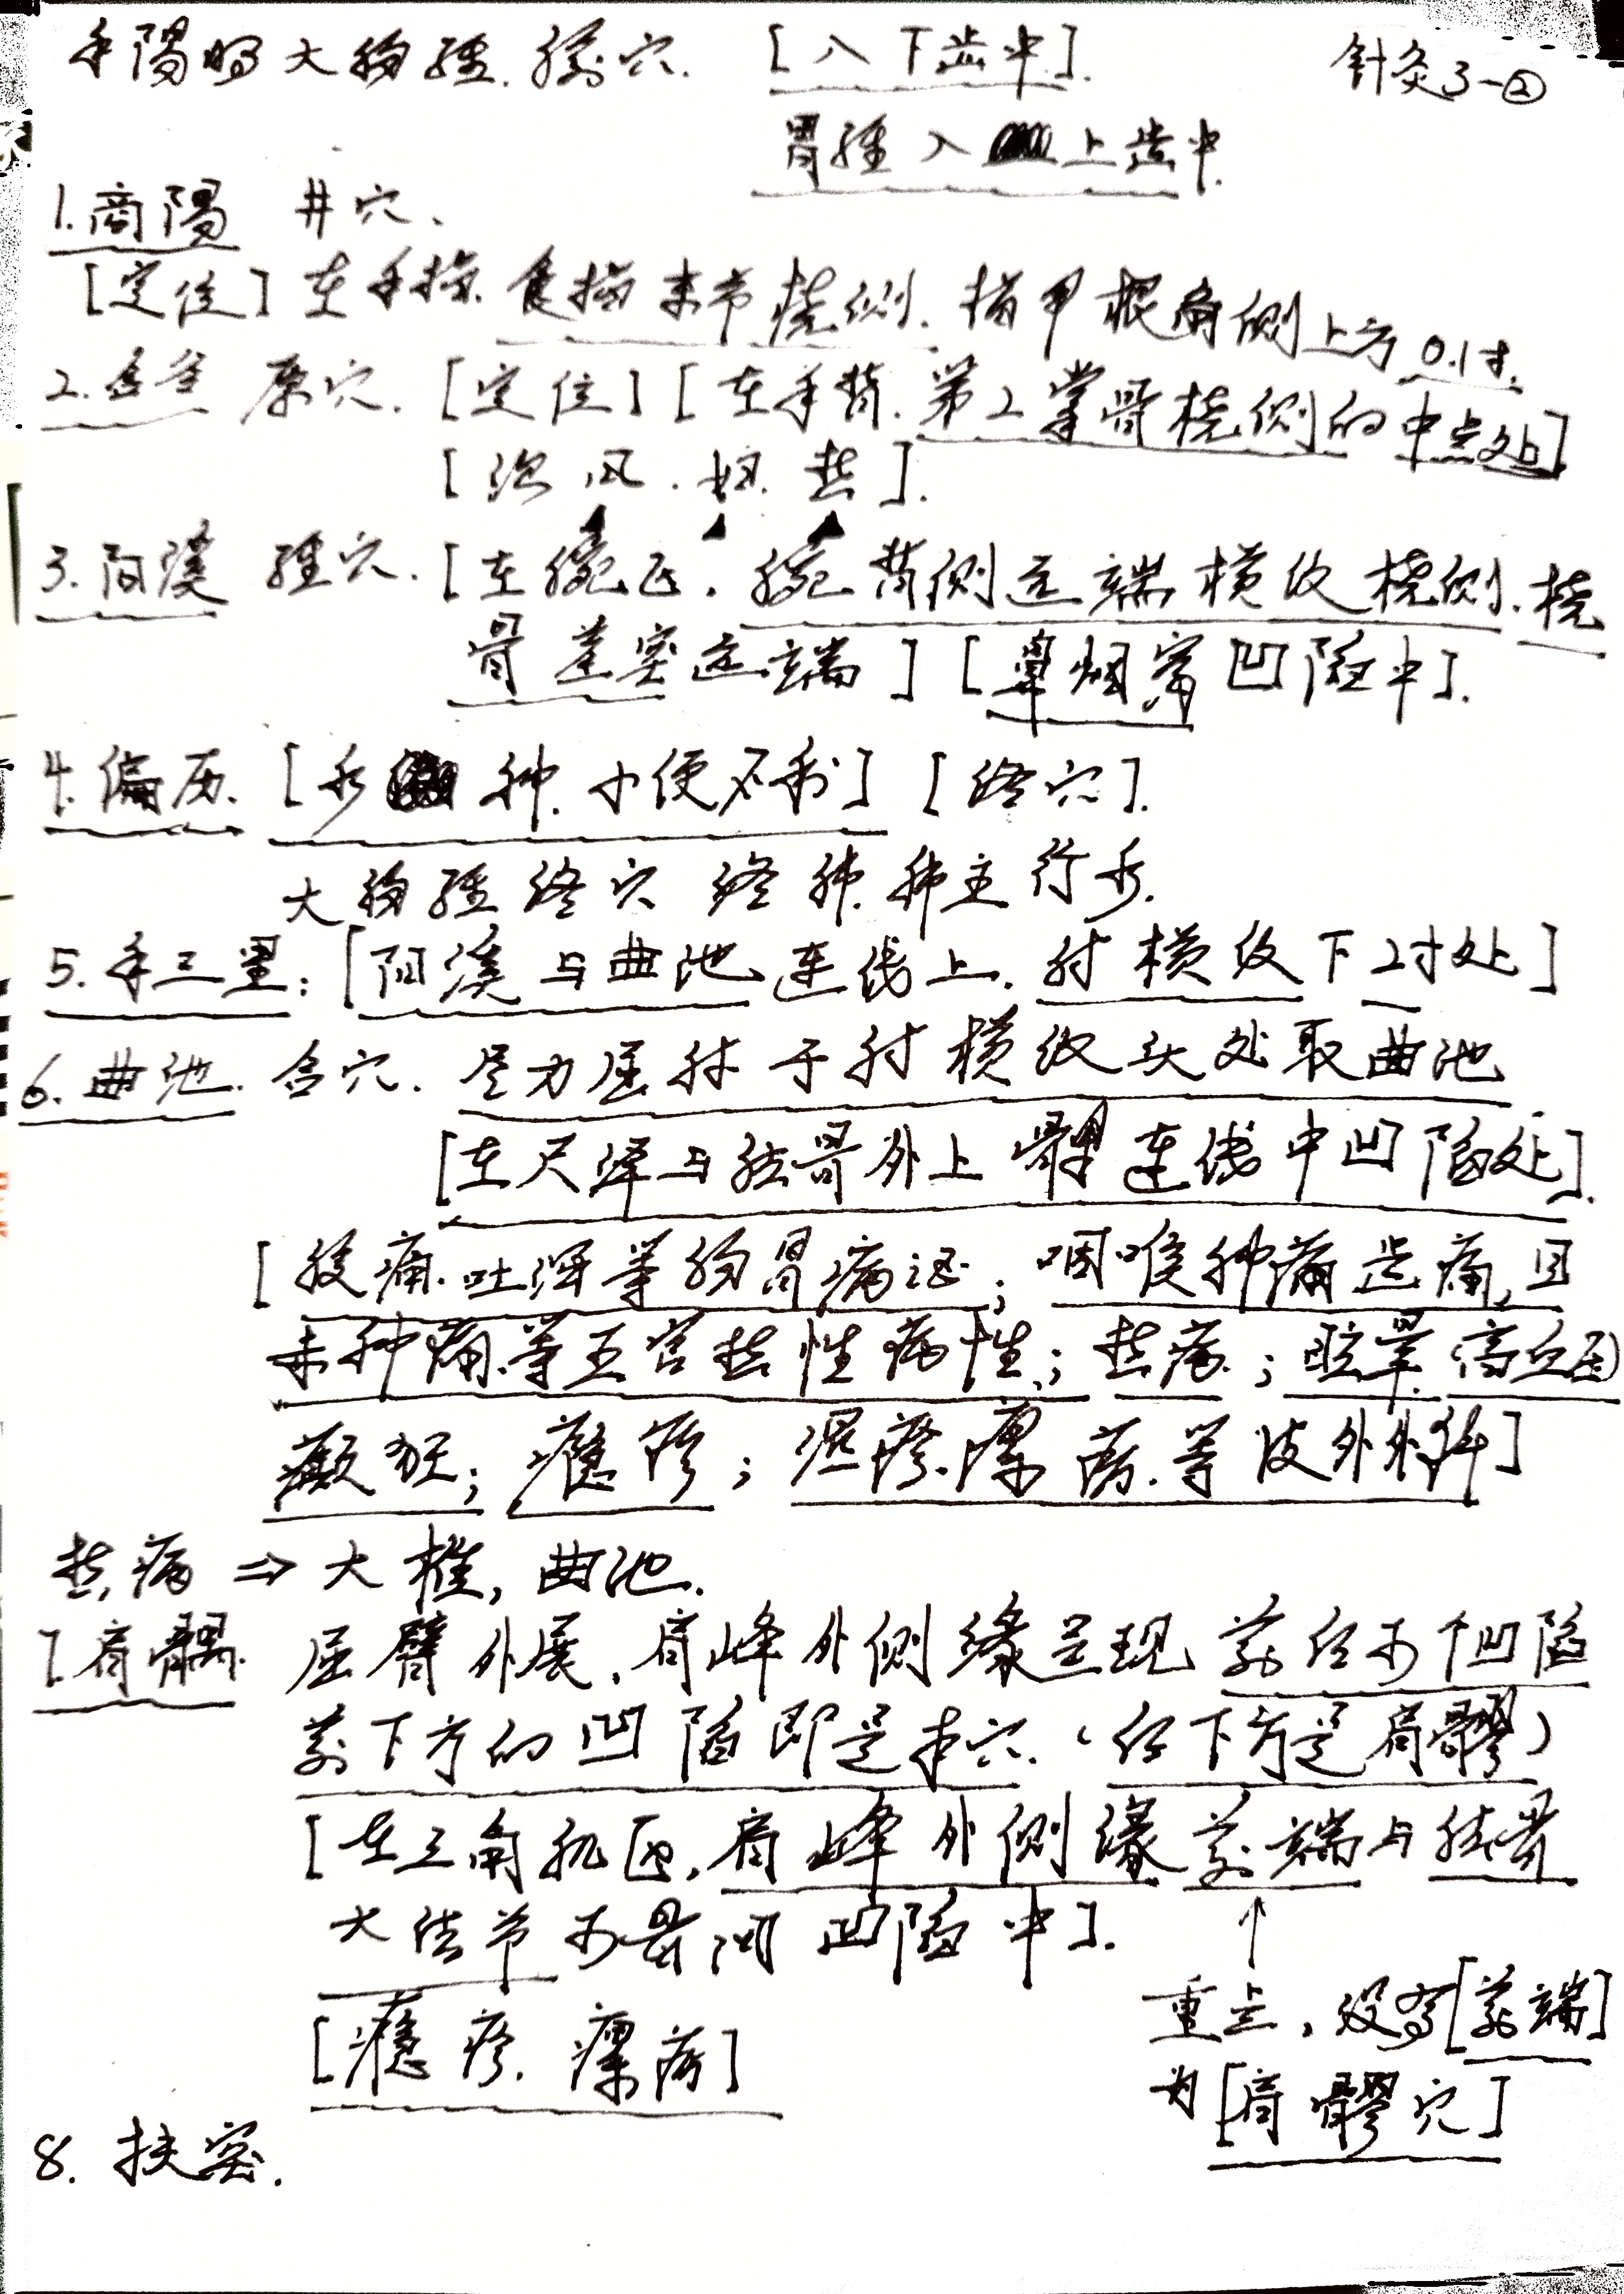 手陽明大肠經. 腧穴. [入下齿中]. 针灸3-②
胃經入上齿中.
1.商陽 井穴、
[定位] 在手指. 食指末节桡侧. 指甲根角侧上方0.1寸.
2.合谷 原穴. [定位] [在手背. 第2掌骨桡侧的中点处]
风. 热].
3.阳溪 經穴. [在腕区. 腕背侧远端横纹桡侧. 桡
骨茎突远端] [鼻烟窝凹陷中].
4.偏历. [水肿. 小便不利] [络穴].
大肠經络穴 络肺. 肺主行水.
5.手三里: [阳溪与曲池连线上. 肘横纹下2寸处]
6.曲池. 合穴. 尽力屈肘于肘横纹头处取曲池
[在尺泽与肱骨外上髁连线中凹陷处].
[腹痛. 吐泻等肠胃病证; 咽喉肿痛齿痛, 目
赤肿痛. 等五官热性病性; 热病. ; 眩晕. 高血压
癫狂; 瘾疹; 湿疹. 瘰疬. 等皮外外科]
热病 ⇒ 大椎, 曲池.
7.肩髃. 屈臂外展, 肩峰外侧缘呈现前后两个凹陷
前下方的凹陷即是本穴. (后下方是肩髎)
[在三角肌区, 肩峰外侧缘前端与肱骨
大结节两骨间凹陷中].
↑
重点, 没有[前端]
[瘾疹. 瘰疬]
为[肩髎穴]
8. 扶突.